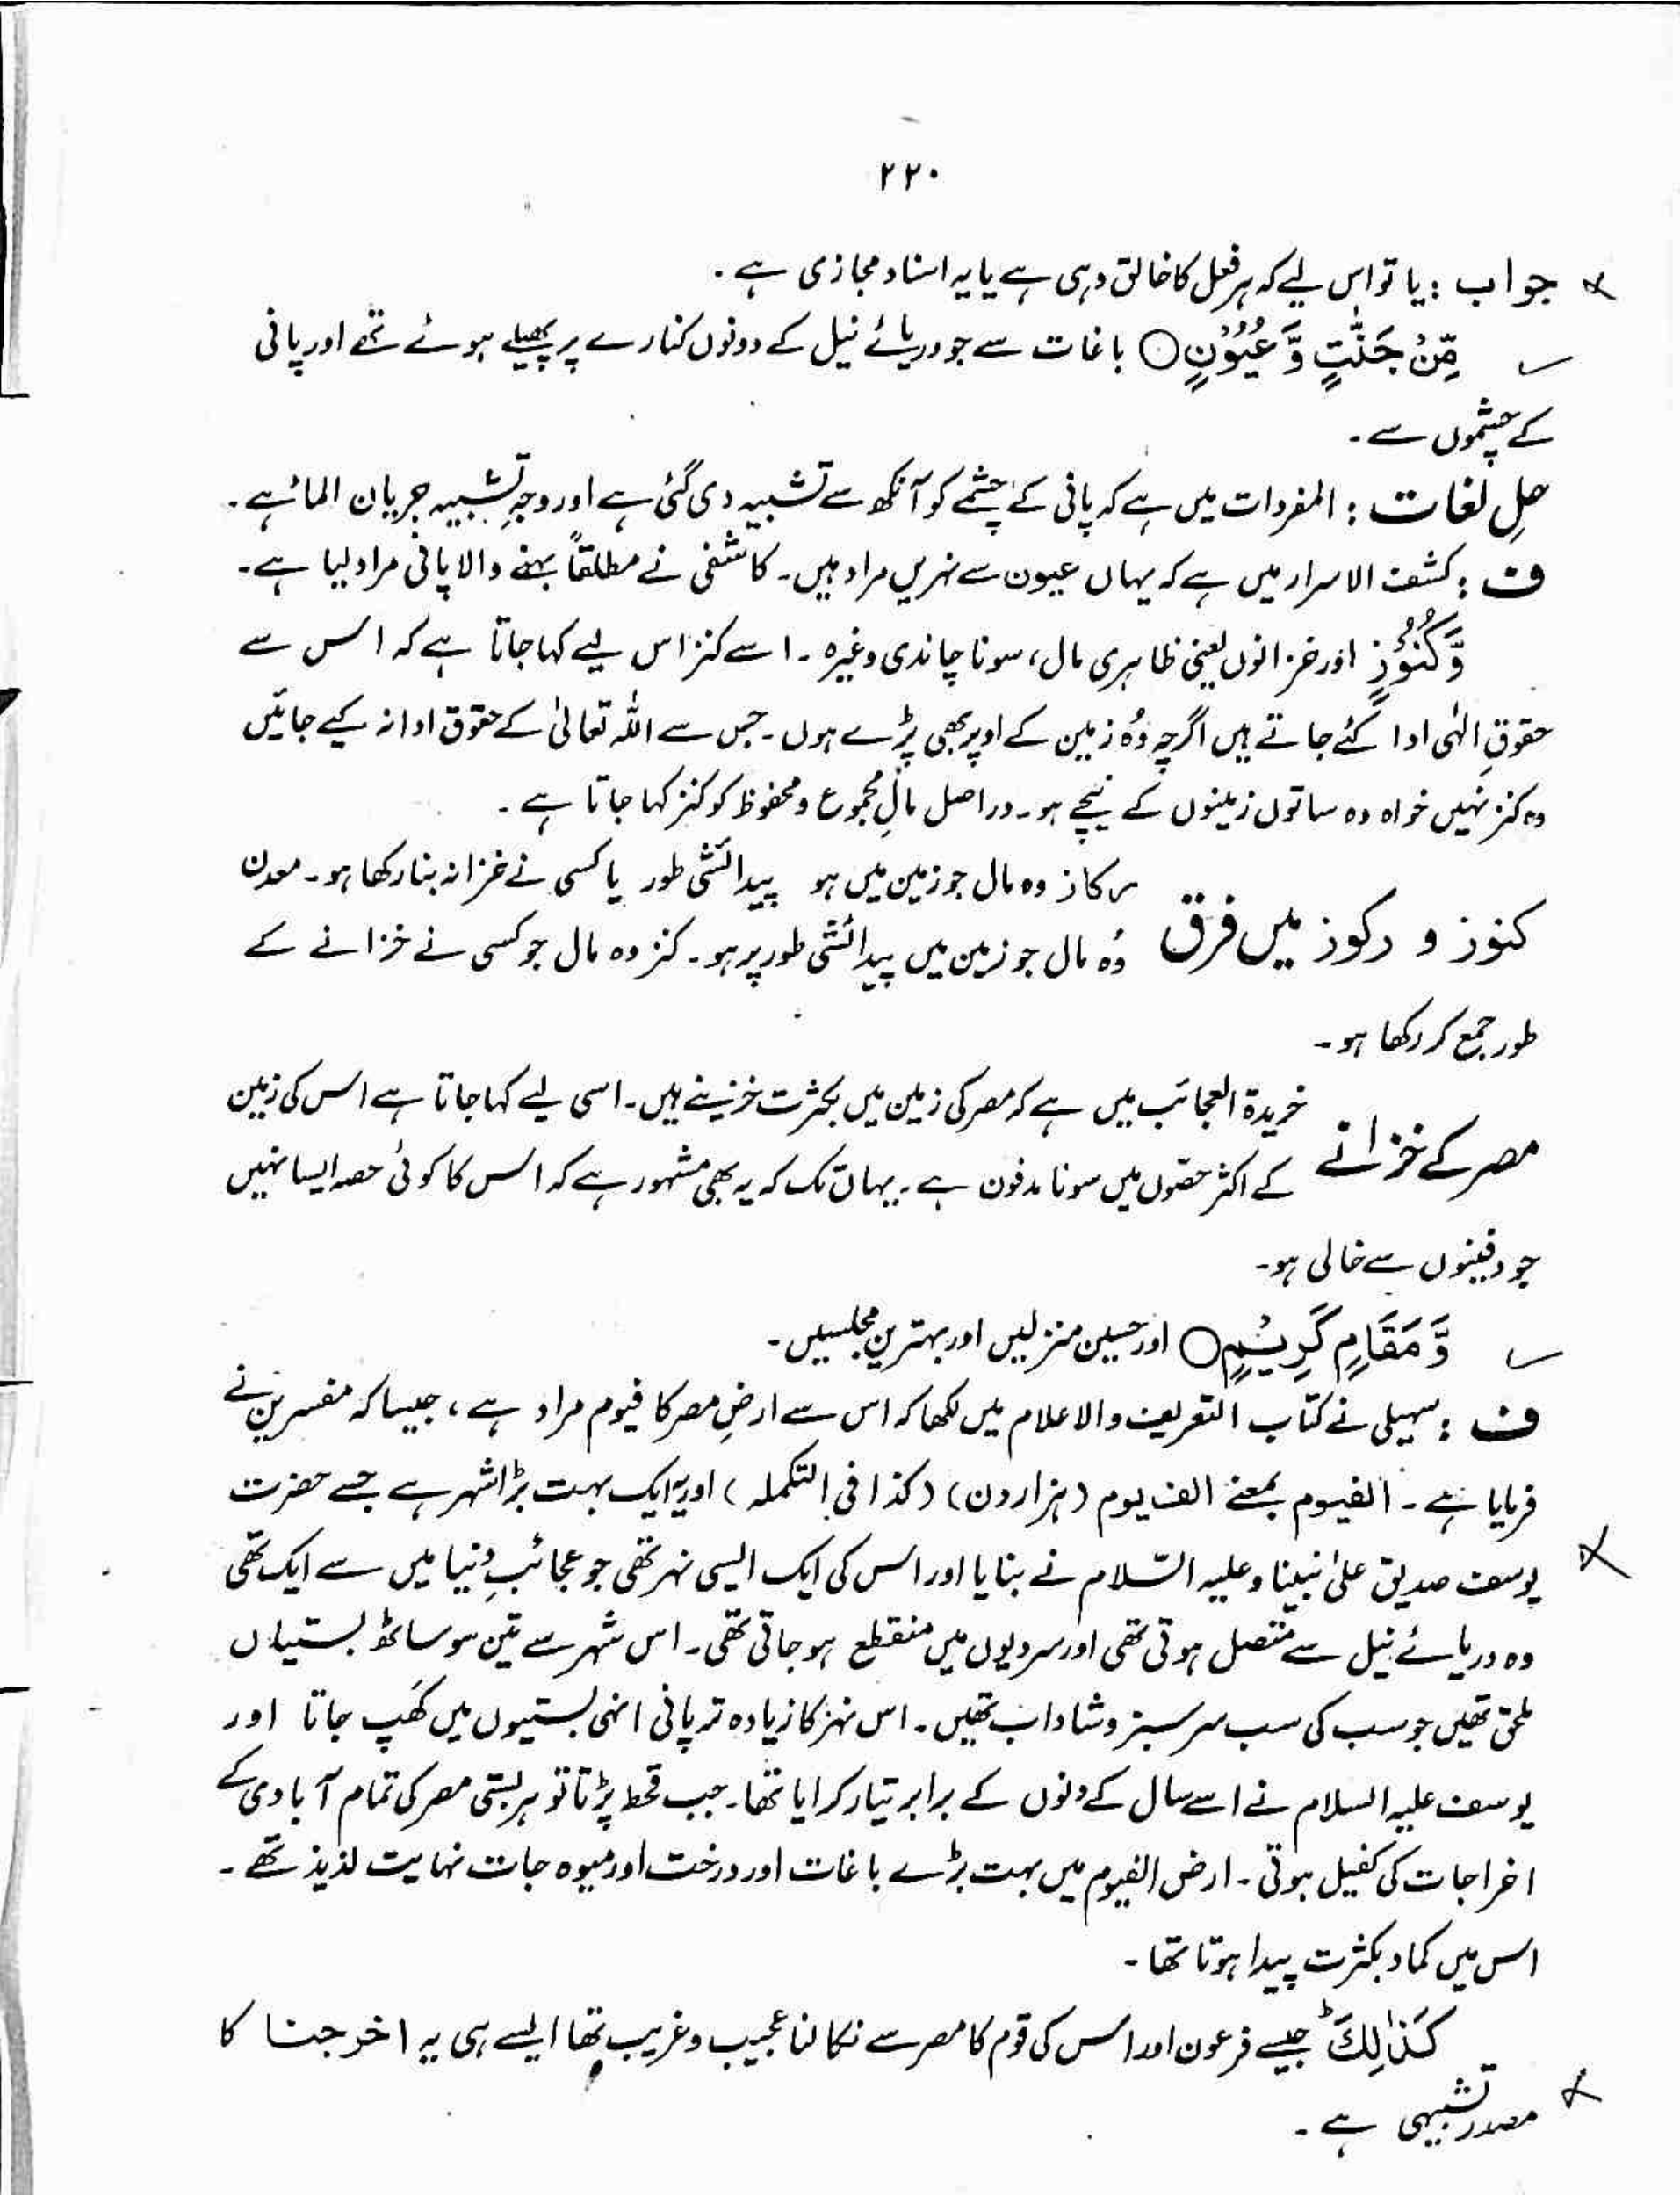 ۲۲۰
جواب : یا تو اس لیے کہ ہر فعل کا خالق وہی ہے یا یہ اسناد مجازی ہے ۔
مِّنْ جَنّٰتٍ وَّ عُیُوْنٍ○ باغات سے جو دریائے نیل کے دونوں کنارے پر پھیلے ہوئے تھے اور پانی
کے چشموں سے ۔
حلِ لغات : المفردات میں ہے کہ پانی کے چشمے کو آنکھ سے تشبیہ دی گئی ہے اور وجہِ تشبیہ جریان الماء ہے ۔
ف : کشف الاسرار میں ہے کہ یہاں عیون سے نہریں مراد ہیں ۔ کاشفی نے مطلقاً بہنے والا پانی مراد لیا ہے ۔
وَّ کُنُوْزٍ اور خزانوں یعنی ظاہری مال ، سونا چاندی وغیرہ ۔ اسے کنز اس لیے کہا جاتا ہے کہ اس سے
حقوقِ الٰہی ادا کئے جاتے ہیں اگرچہ وُہ زمین کے اوپر بھی پڑے ہوں ۔ جس سے اللہ تعالیٰ کے حقوق ادا نہ کیے جائیں
وہ کنز نہیں خواہ وہ ساتوں زمینوں کے نیچے ہو ۔ در اصل مالِ مجموع و محفوظ کو کنز کہا جاتا ہے ۔
کنوز و رکوز میں فرق رکاز وہ مال جو زمین میں ہو پیدائشی طور یا کسی نے خزانہ بنا رکھا ہو ۔ معدن
وُہ مال جو زمین میں پیدائشی طور پر ہو ۔ کنز وہ مال جو کسی نے خزانے کے
طور جمع کر رکھا ہو ۔
مصر کے خزانے خریدۃ العجائب میں ہے کہ مصر کی زمین میں بکثرت خزینے ہیں ۔ اسی لیے کہا جاتا ہے اس کی زمین
کے اکثر حصّوں میں سونا مدفون ہے ۔ یہاں تک کہ یہ بھی مشہور ہے کہ اس کا کوئی حصہ ایسا نہیں
جو دفینوں سے خالی ہو ۔
وَّ مَقَامٍ كَرِیْمٍ○ اور حسین منزلیں اور بہترین مجلسیں ۔
ف : سہیلی نے کتاب التعریف والاعلام میں لکھا کہ اس سے ارضِ مصر کا فیوم مراد ہے ، جیسا کہ مفسرین نے
فرمایا ہے ۔ الفیوم بمعنے الف یوم ( ہزار دن ) ( کذا فی التکملہ ) اور یہ ایک بہت بڑا شہر ہے جسے حضرت
یوسف صدیق علیٰ نبینا و علیہ السّلام نے بنایا اور اس کی ایک ایسی نہر تھی جو عجائبِ دُنیا میں سے ایک تھی
وہ دریائے نیل سے متصل ہوتی تھی اور سردیوں میں منقطع ہو جاتی تھی ۔ اس شہر سے تین سو ساٹھ بستیاں
ملحق تھیں جو سب کی سب سرسبز و شاداب تھیں ۔ اس نہر کا زیادہ تر پانی انہی بستیوں میں کھَپ جاتا اور
یوسف علیہ السلام نے اسے سال کے دنوں کے برابر تیار کرایا تھا ۔ جب قحط پڑتا تو ہر بستی مصر کی تمام آبادی کے
اخراجات کی کفیل ہوتی ۔ ارض الفیوم میں بہت بڑے باغات اور درخت اور میوہ جات نہایت لذیذ تھے ۔
اس میں کماد بکثرت پیدا ہوتا تھا ۔
كَذٰلِكَ ؕ جیسے فرعون اور اس کی قوم کا مصر سے نکالنا عجیب و غریب تھا ایسے ہی یہ اخرجنا کا
مصدر تشبیہی ہے ۔